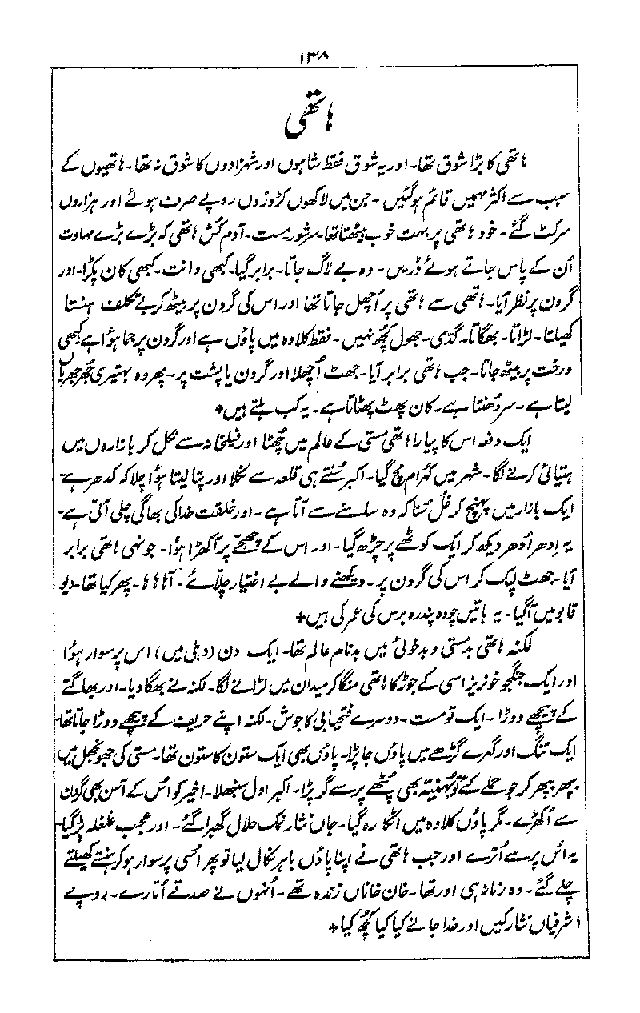 ۱۳۸
ہاتھی
ہاتھی کا بڑا شوق تھا۔ اور یہ شوق فقط شاہوں اور شہزادوں کا شوق نہ تھا۔ ہاتھیوں کے
سبب سے اکثر مہمیں قائم ہو گئیں۔ جن میں لاکھوں کروڑوں روپے صرف ہوئے اور ہزاروں
سر کٹ گئے۔ خود ہاتھی پر بہت خوب بیٹھتا تھا۔ سرشور مست۔ آدم کش ہاتھی کہ بڑے بڑے مہاوت
اُن کے پاس جاتے ہوئے ڈریں۔ وہ بے لاگ جاتا۔ برابر گیا۔ کبھی دانت۔ کبھی کان پکڑا۔ اور
گردن پر نظر آیا۔ ہاتھی سے ہاتھی پر اُچھل جاتا تھا اور اس کی گردن پر بیٹھ کر بے تکلف ہنستا
کھیلتا۔ لڑاتا۔ بھگاتا۔ گدی۔ جھول کچھ نہیں۔ فقط کلاوہ میں پاؤں ہے اور گردن پر جما ہؤا ہے کبھی
درخت پر بیٹھ جاتا۔ جب ہاتھی برابر آیا۔ جھٹ اُچھلا اور گردن یا پشت پر۔ پھر وہ بہتیری جھرجھریاں
لیتا ہے۔ سر دُھنتا ہے۔ کان پھٹ پھٹاتا ہے۔ یہ کب ہلتے ہیں +
ایک دفعہ اس کا پیارا ہاتھی مستی کے عالم میں چھٹا اور فیلخانہ سے نکل کر بازاروں میں
ہتیائی کرنے لگا۔ شہر میں کہرام مچ گیا۔ اکبر سُنتے ہی قلعہ سے نکلا اور پتا لیتا ہؤا چلا کہ کدھر ہے
ایک بازار میں پہنچ کر غُل سُنا کہ وہ سامنے سے آتا ہے۔ اور خلقت خدا کی بھاگی چلی آتی ہے۔
یہ اِدھر اُدھر دیکھ کر ایک کوٹھے پر چڑھ گیا۔ اور اس کے چھجے پر آ کھڑا ہؤا۔ جونہی ہاتھی برابر
آیا۔ جھٹ لپک کر اس کی گردن پر۔ دیکھنے والے بے اختیار چلّائے۔ آہاہا۔ پھر کیا تھا۔ دیو
قابو میں آ گیا۔ یہ باتیں چودہ پندرہ برس کی عمر کی ہیں +
لکنہ ہاتھی بدمستی و بدخوئی میں بدنام عالم تھا۔ ایک دن (دہلی میں) اس پر سوار ہؤا
اور ایک جنگجو خونریز اسی کے جوڑ کا ہاتھی منگا کر میدان میں لڑانے لگا۔ لکنہ نے بھگا دیا۔ اور بھاگتے
کے پیچھے دوڑا۔ ایک تو مست۔ دوسرے فتحیابی کا جوش۔ لکنہ اپنے حریف کے پیچھے دوڑا جاتا تھا
ایک تنگ اور گہرے گڑھے میں پاؤں جا پڑا۔ پاؤں بھی ایک ستون کا ستون تھا۔ مستی کی جھونجھل میں
بپھر بپھر کر جو حملے کئے تو بھوئی بھی پٹھے پر سے گر پڑا۔ اکبر اول سنبھلا۔ اخیر کو اُس کے آسن بھی گردن
سے اُکھڑے۔ مگر پاؤں کلاوہ میں اٹکا رہ گیا۔ جاں نثار نمک حلال گھبرا گئے۔ اور عجب غلغلہ پڑ گیا۔
یہ اس پر سے اُترے اور جب ہاتھی نے اپنا پاؤں باہر نکال لیا تو پھر اُسی پر سوار ہو کر ہنستے کھیلتے
چلے گئے۔ وہ زمانہ ہی اور تھا۔ خان خاناں زندہ تھے۔ اُنہوں نے صدقے اُتارے۔ روپے
اشرفیاں نثار کیں اور خدا جانے کیا کیا کچھ کیا +